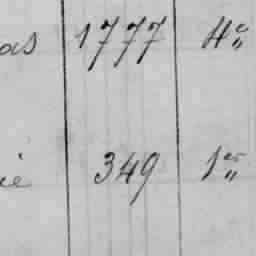 as 1777 4e „
ie 349 1er „